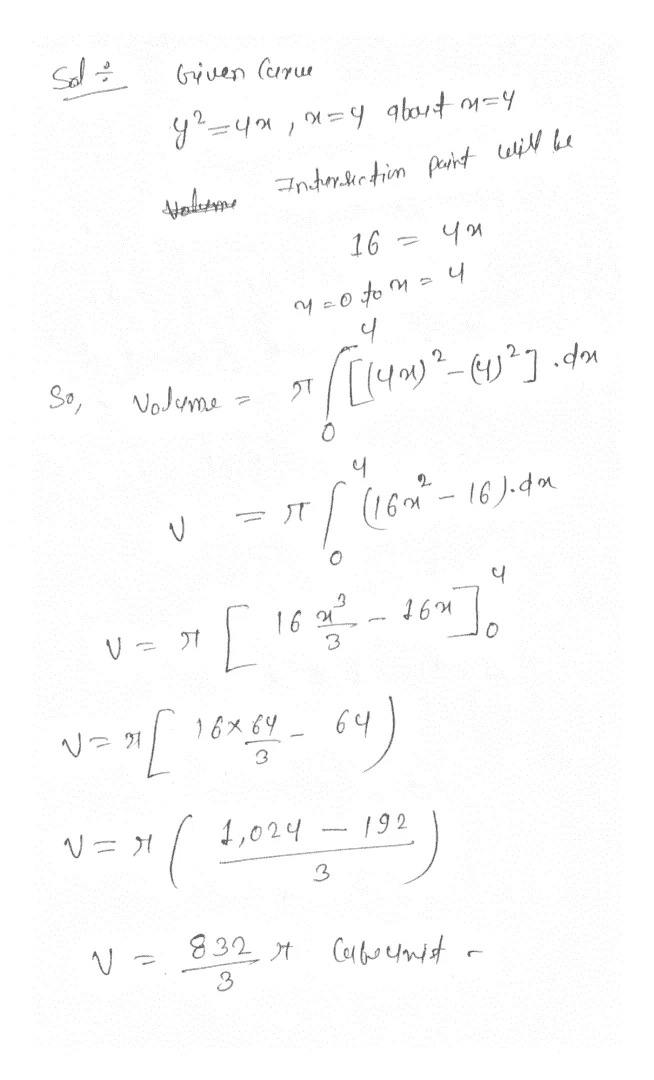 Sol ÷ Given Curve
y² = 4x , x=4 about x=4
Volume Intersection point will be
16 = 4x
x=0 to x=4
So, Volume = π ∫₀⁴ [(4x)² - (4)²] . dx
V = π ∫₀⁴ (16x² - 16) . dx
V = π [ 16 x³/3 - 16x ]₀⁴
V = π [ 16×64/3 - 64 )
V = π ( (1,024 - 192)/3 )
V = 832/3 π Cubounist